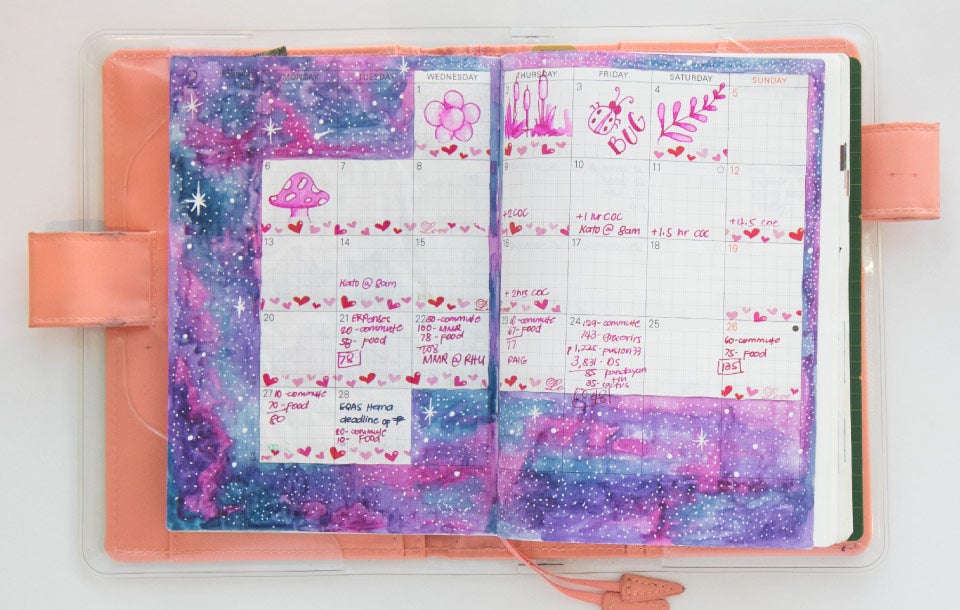 MONDAY
TUESDAY
WEDNESDAY
THURSDAY
FRIDAY
SATURDAY
SUNDAY
1
2
3
BUG
4
5
6
7
8
Love
9
+2 COC
10
+1 hr COC
Kato @ 8am
11
+1.5 hr COC
12
+12.5 COC
13
14
Kato @ 8am
15
16
+2hrs COC
17
18
19
20
21 Expenses
20-commute
58- Food
78
22 30-commute
100- MMR
78- food
208
MMR @ RHU
23 10-commute
67-food
77
PAIG
24 129-commute
143-groceries
1,725-
3,831-DS
85
35-
25
26
60-commute
75- food
135
Love
27 10-commute
70-Food
80
28
EQAS Hema
deadline op
20-commute
19- Food